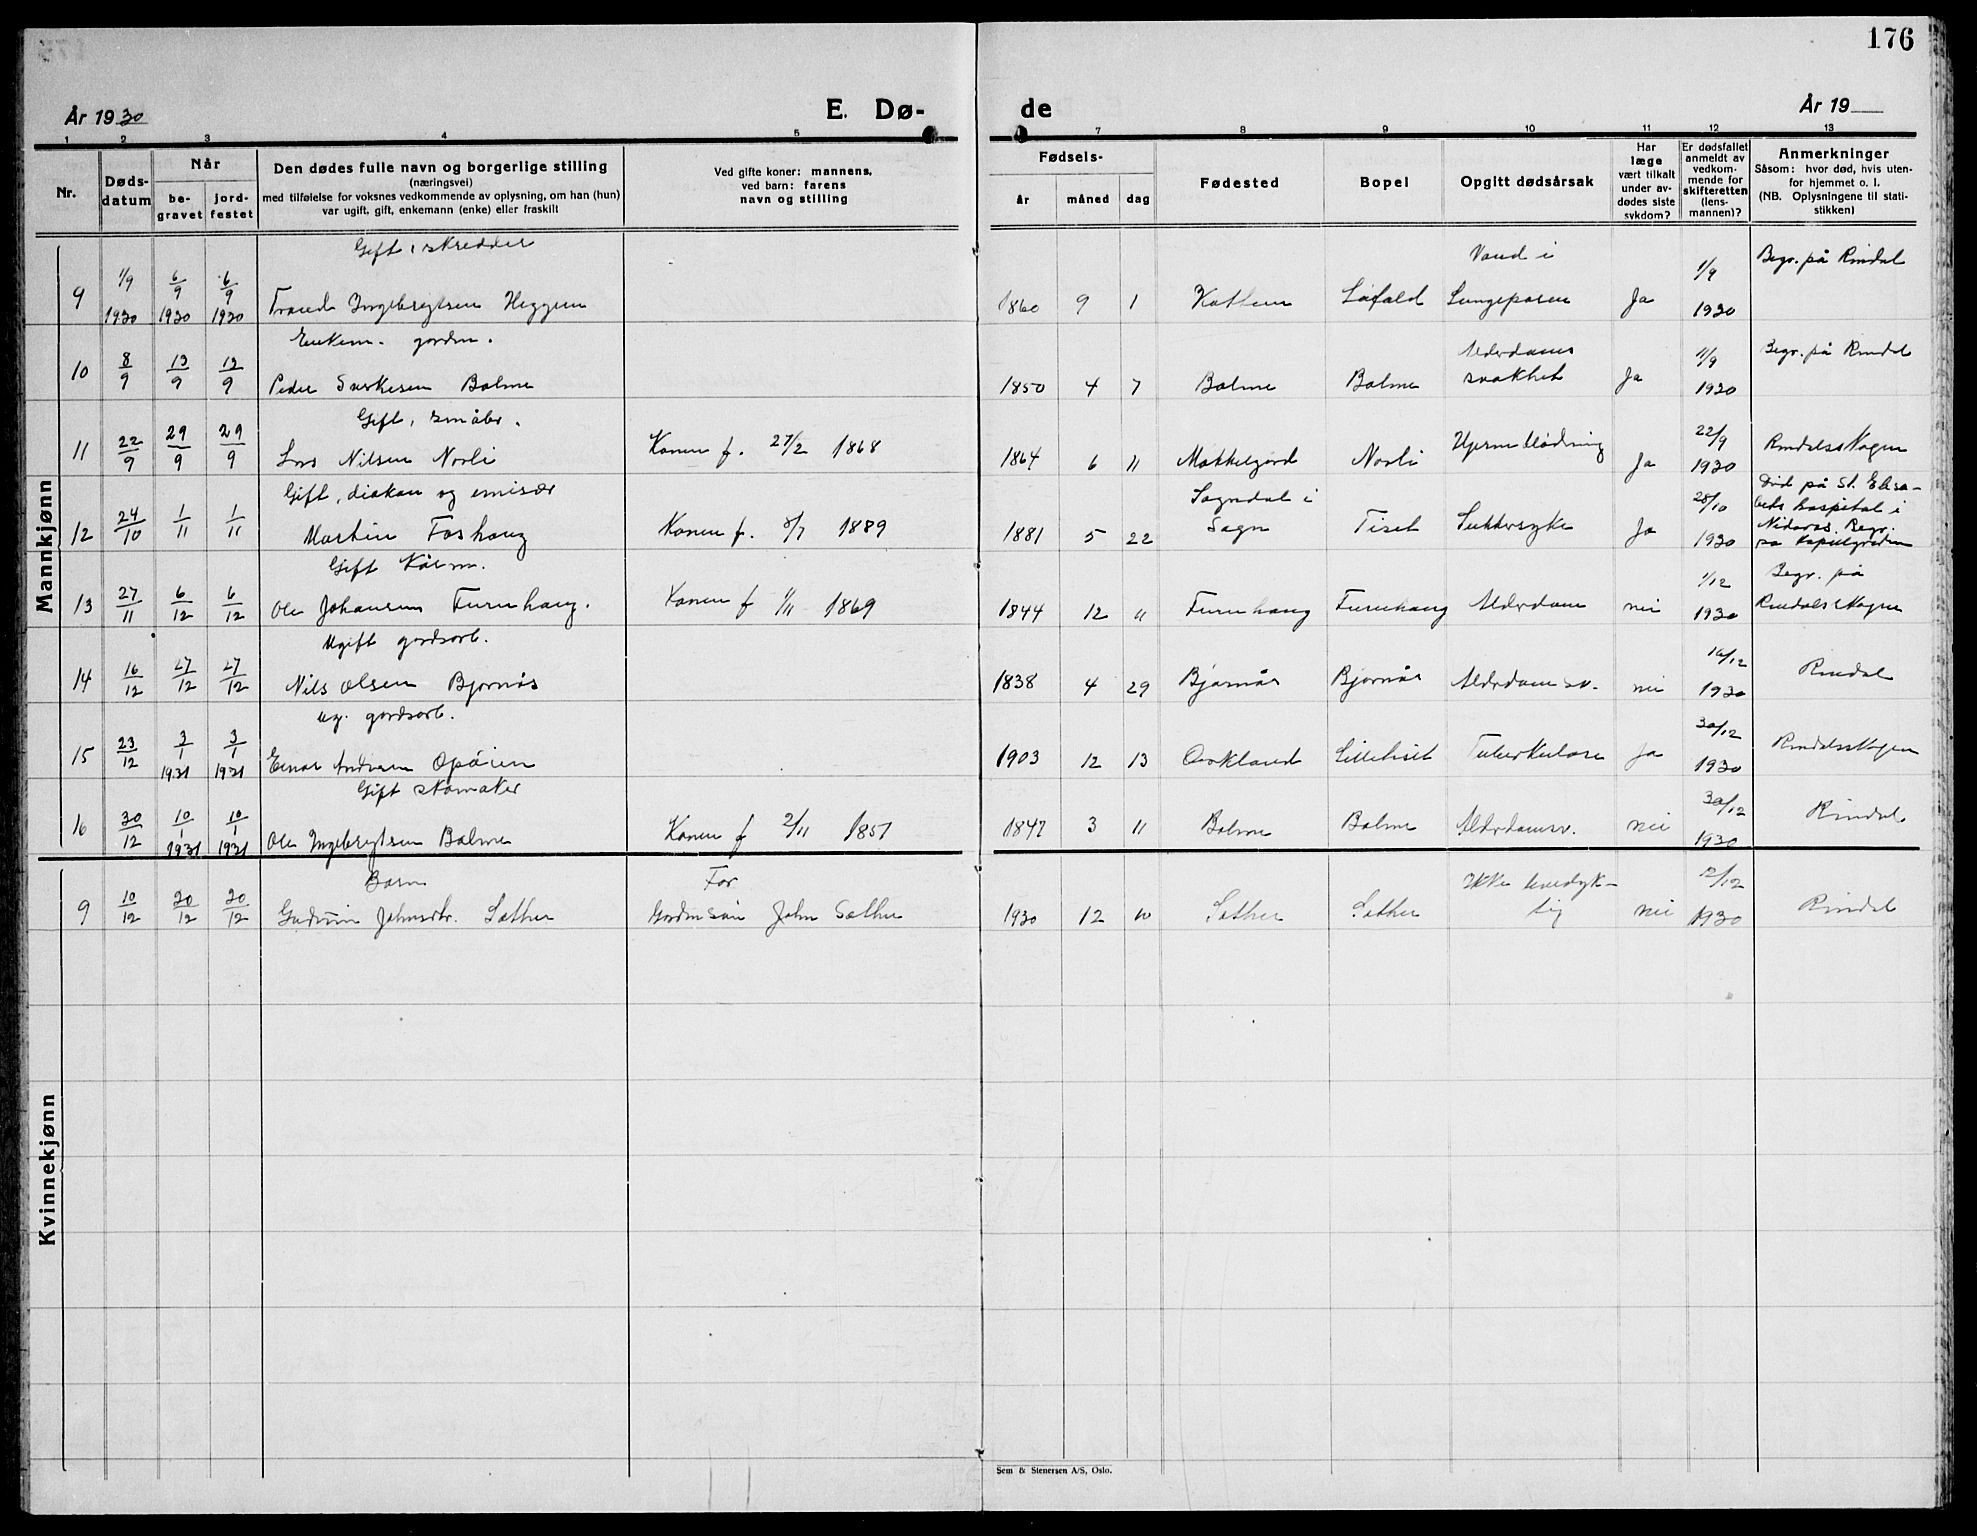 176
År 1930
E. Dø-
de
År 19
1 2 3 4 5 7 8 9 10 11 12 13
Nr.
Døds-
datum
Når
be-
gravet
jord-
festet
Den dødes fulle navn og borgerlige stilling
(næringsvei)
med tilføielse for voksnes vedkommende av oplysning, om han (hun)
var ugift, gift, enkemann (enke) eller fraskilt
Ved gifte koner: mannens,
ved barn: farens
navn og stilling
Fødsels-
år
måned
dag
Fødested
Bopel
Opgitt dødsårsak
Har
læge
vært tilkalt
under av-
dødes siste
sykdom?
Er dødsfallet
anmeldt av
vedkom-
mende for
skifteretten
(lens-
mannen)?
Anmerkninger
Såsom: hvor død, hvis uten-
for hjemmet o. l.
(NB. Oplysningene til stati-
stikken)
Mannkjønn
Gift, skredder
9 1/9 1930 6/9 1930 6/9 1930 Trond Ingebregtsen Heggem 1860 9 1 Løfald Vand i Lungeposen Ja 1/9 1930 Begr. på Rindal
Enkem. gordm.
10 8/9 13/9 13/9 Peder Bolme 1850 4 7 Bolme Bolme Alderdoms svakhet Ja 11/9 1930 Begr. på Rindal
Gift, småbr.
11 22/9 29/9 29/9 Lars Nilsen Norli Konen f. 27/2 1868 1864 6 11 Norli Hjerneblødning Ja 22/9 1930 Rindalsskogen
Gift, diakon og emisær
12 24/10 1/11 1/11 Martin Foshaug Konen f. 8/7 1889 1881 5 22 Sogndal i Sogn Tiset Sukkersyke Ja 28/10 1930 Død på St. Elisa-
beds hospital i
Nidaros. Begr.
på
Gift Kårm.
13 27/11 6/12 6/12 Ole Johansen Furuhaug. Konen f 1/11 1869 1844 12 11 Furuhaug Furuhaug Alderdom nei 1/12 1930 Begr. på Rindalsskogen
Ugift gordsarb.
14 16/12 27/12 27/12 Nils Olsen Bjørnås 1838 4 29 Bjørnås Bjørnås Alderdomsv. nei 16/12 1930 Rindal
ug. gordsarb.
15 23/12 3/1 1931 3/1 1931 Einar Andersen Opøien 1903 12 13 Orkland Lillehiset Tuberkulose Ja 30/12 1930 Rindalsskogen
Gift skomaker
16 30/12 10/1 1931 10/1 1931 Ole Ingebregtsen Bolme Konen f 2/11 1851 1847 3 11 Bolme Bolme Alderdomsv. nei 30/12 1930 Rindal
Kvinnekjønn
Barn Far
9 10/12 20/12 20/12 Gudrun Johnsdtr. Sæther John Sæther 1930 12 10 Sæther Sæther Ikke levedyk-
tig nei 12/12 1930 Rindal
Sem & Stenersen A/S, Oslo.